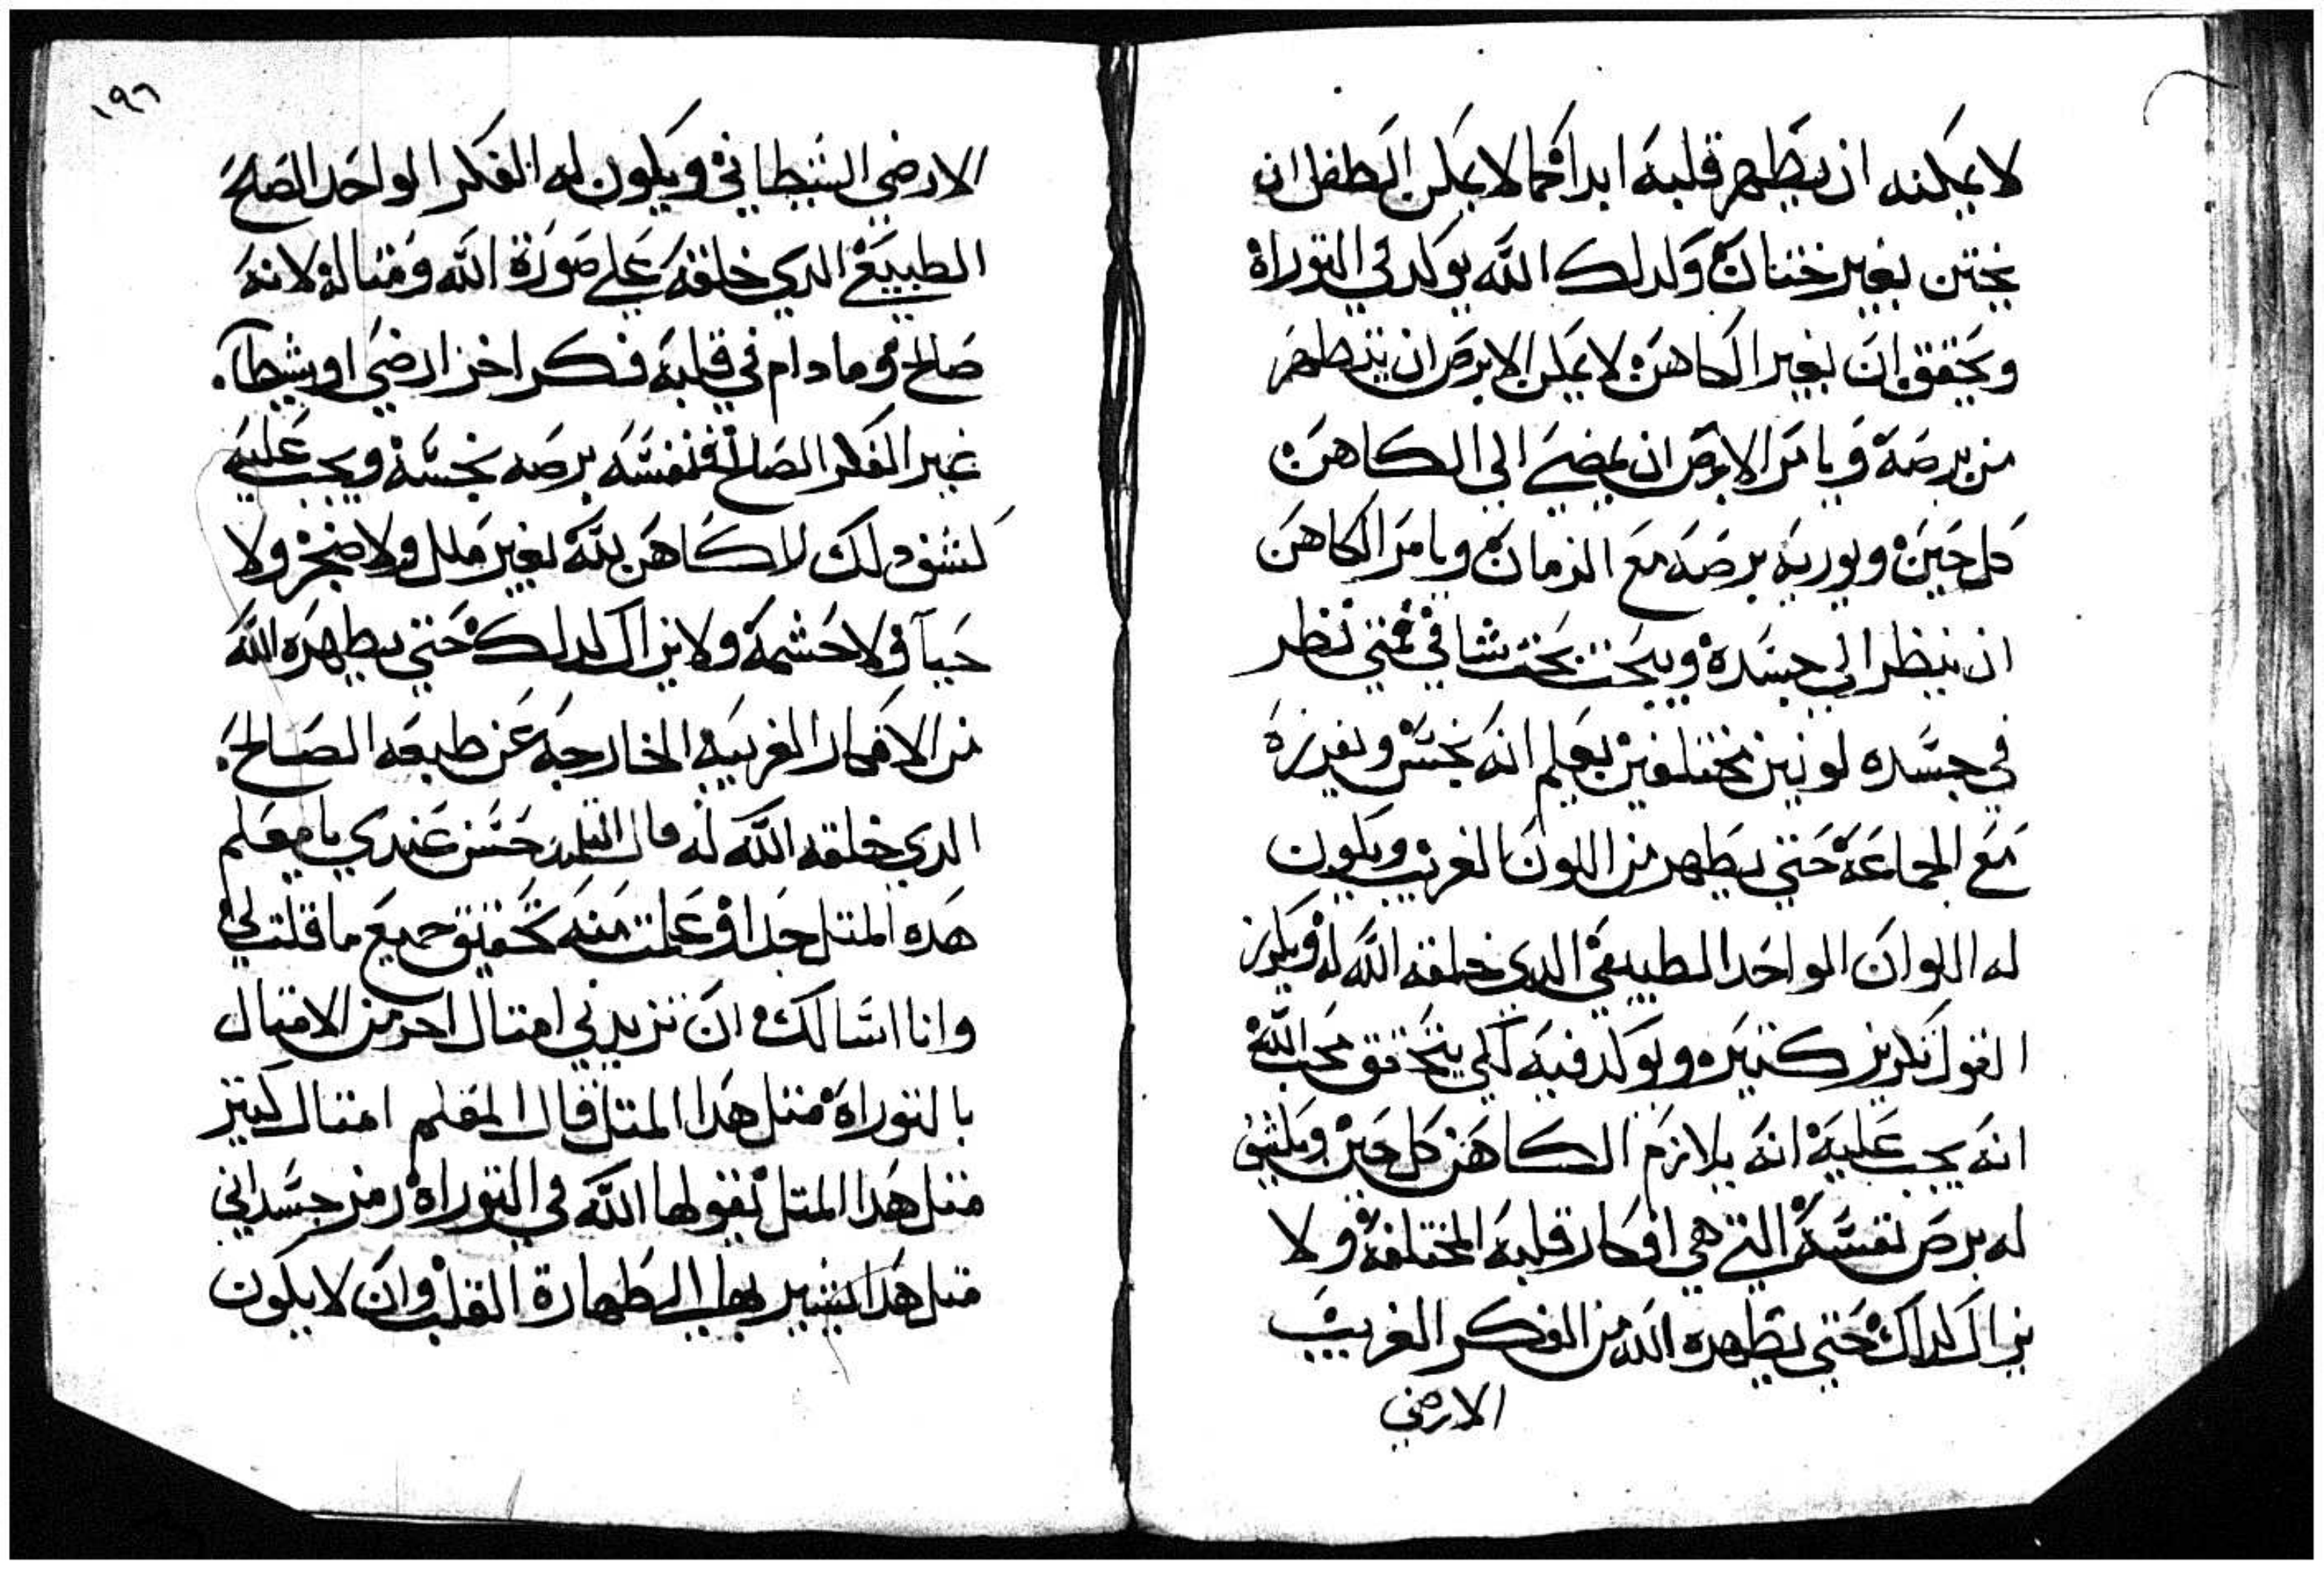 لا يمكنه ان يطهر قلبه ابدا كما لا يمكن الطفل ان
يختن بغير ختان ولدلك الله يوكد في التوراة
ويحقق ان بغير الكاهن لا يمكن الابرص ان يتطهر
من برصه ويامر الابرص ان يمضي الي الكاهن
كل حين ويوريه برصه مع الزمان ويامر الكاهن
ان ينظر الي جسده ويبحت بحت شافي فمتي نظر
في جسده لونين مختلفين يعلم انه نجس ويفرزه
مع الجماعة حتي يطهر من اللون الغريب ويكون
له اللوان الواحد الطبيعي الدي خلقه الله له ويكرز
القول تكريز كتيره ويوكد فيه لكي يتحقق محب الله
انه يجب عليه انه يلازم الكاهن كل حين ويكشف
له برص نفسه التي هي افكار قلبه المختلفه ولا
يزال كداك حتي يطهره الله من الفكر الغريب
الارضي
١٩٦
الارضي الشيطاني ويكون له الفكر الواحد الصلح
الطبيعي الدي خلقه علي صورة الله ومتاله لانه
صالح وما دام في قلبه فكر اخر ارضي او شيطا
غير الفكر الصالح فنفسه برصه نجسه ويجب عليه
كشف دلك للكاهن بته بغير ملل ولا ضجر ولا
حيا ولا حشمة ولا يزال كدلك حتي يطهره الله
من الافكار الغريبه الخارجه عن طبعه الصالح
الدي خلقه الله له قال التلميد حسن عندي يا معلم
هده المتل جدا وعلمت منه تحقيق جميع ما قلت لي
وانا اسالك ان تزيدني امتال اخر من الامتال
بالتوراة متل هدا المتل قال المعلم امتال كتير
متل هدا المتل يقولها الله في التوراة رمز جسداني
متل هدا يشير بها الي طهارة القلب وان لا يكون